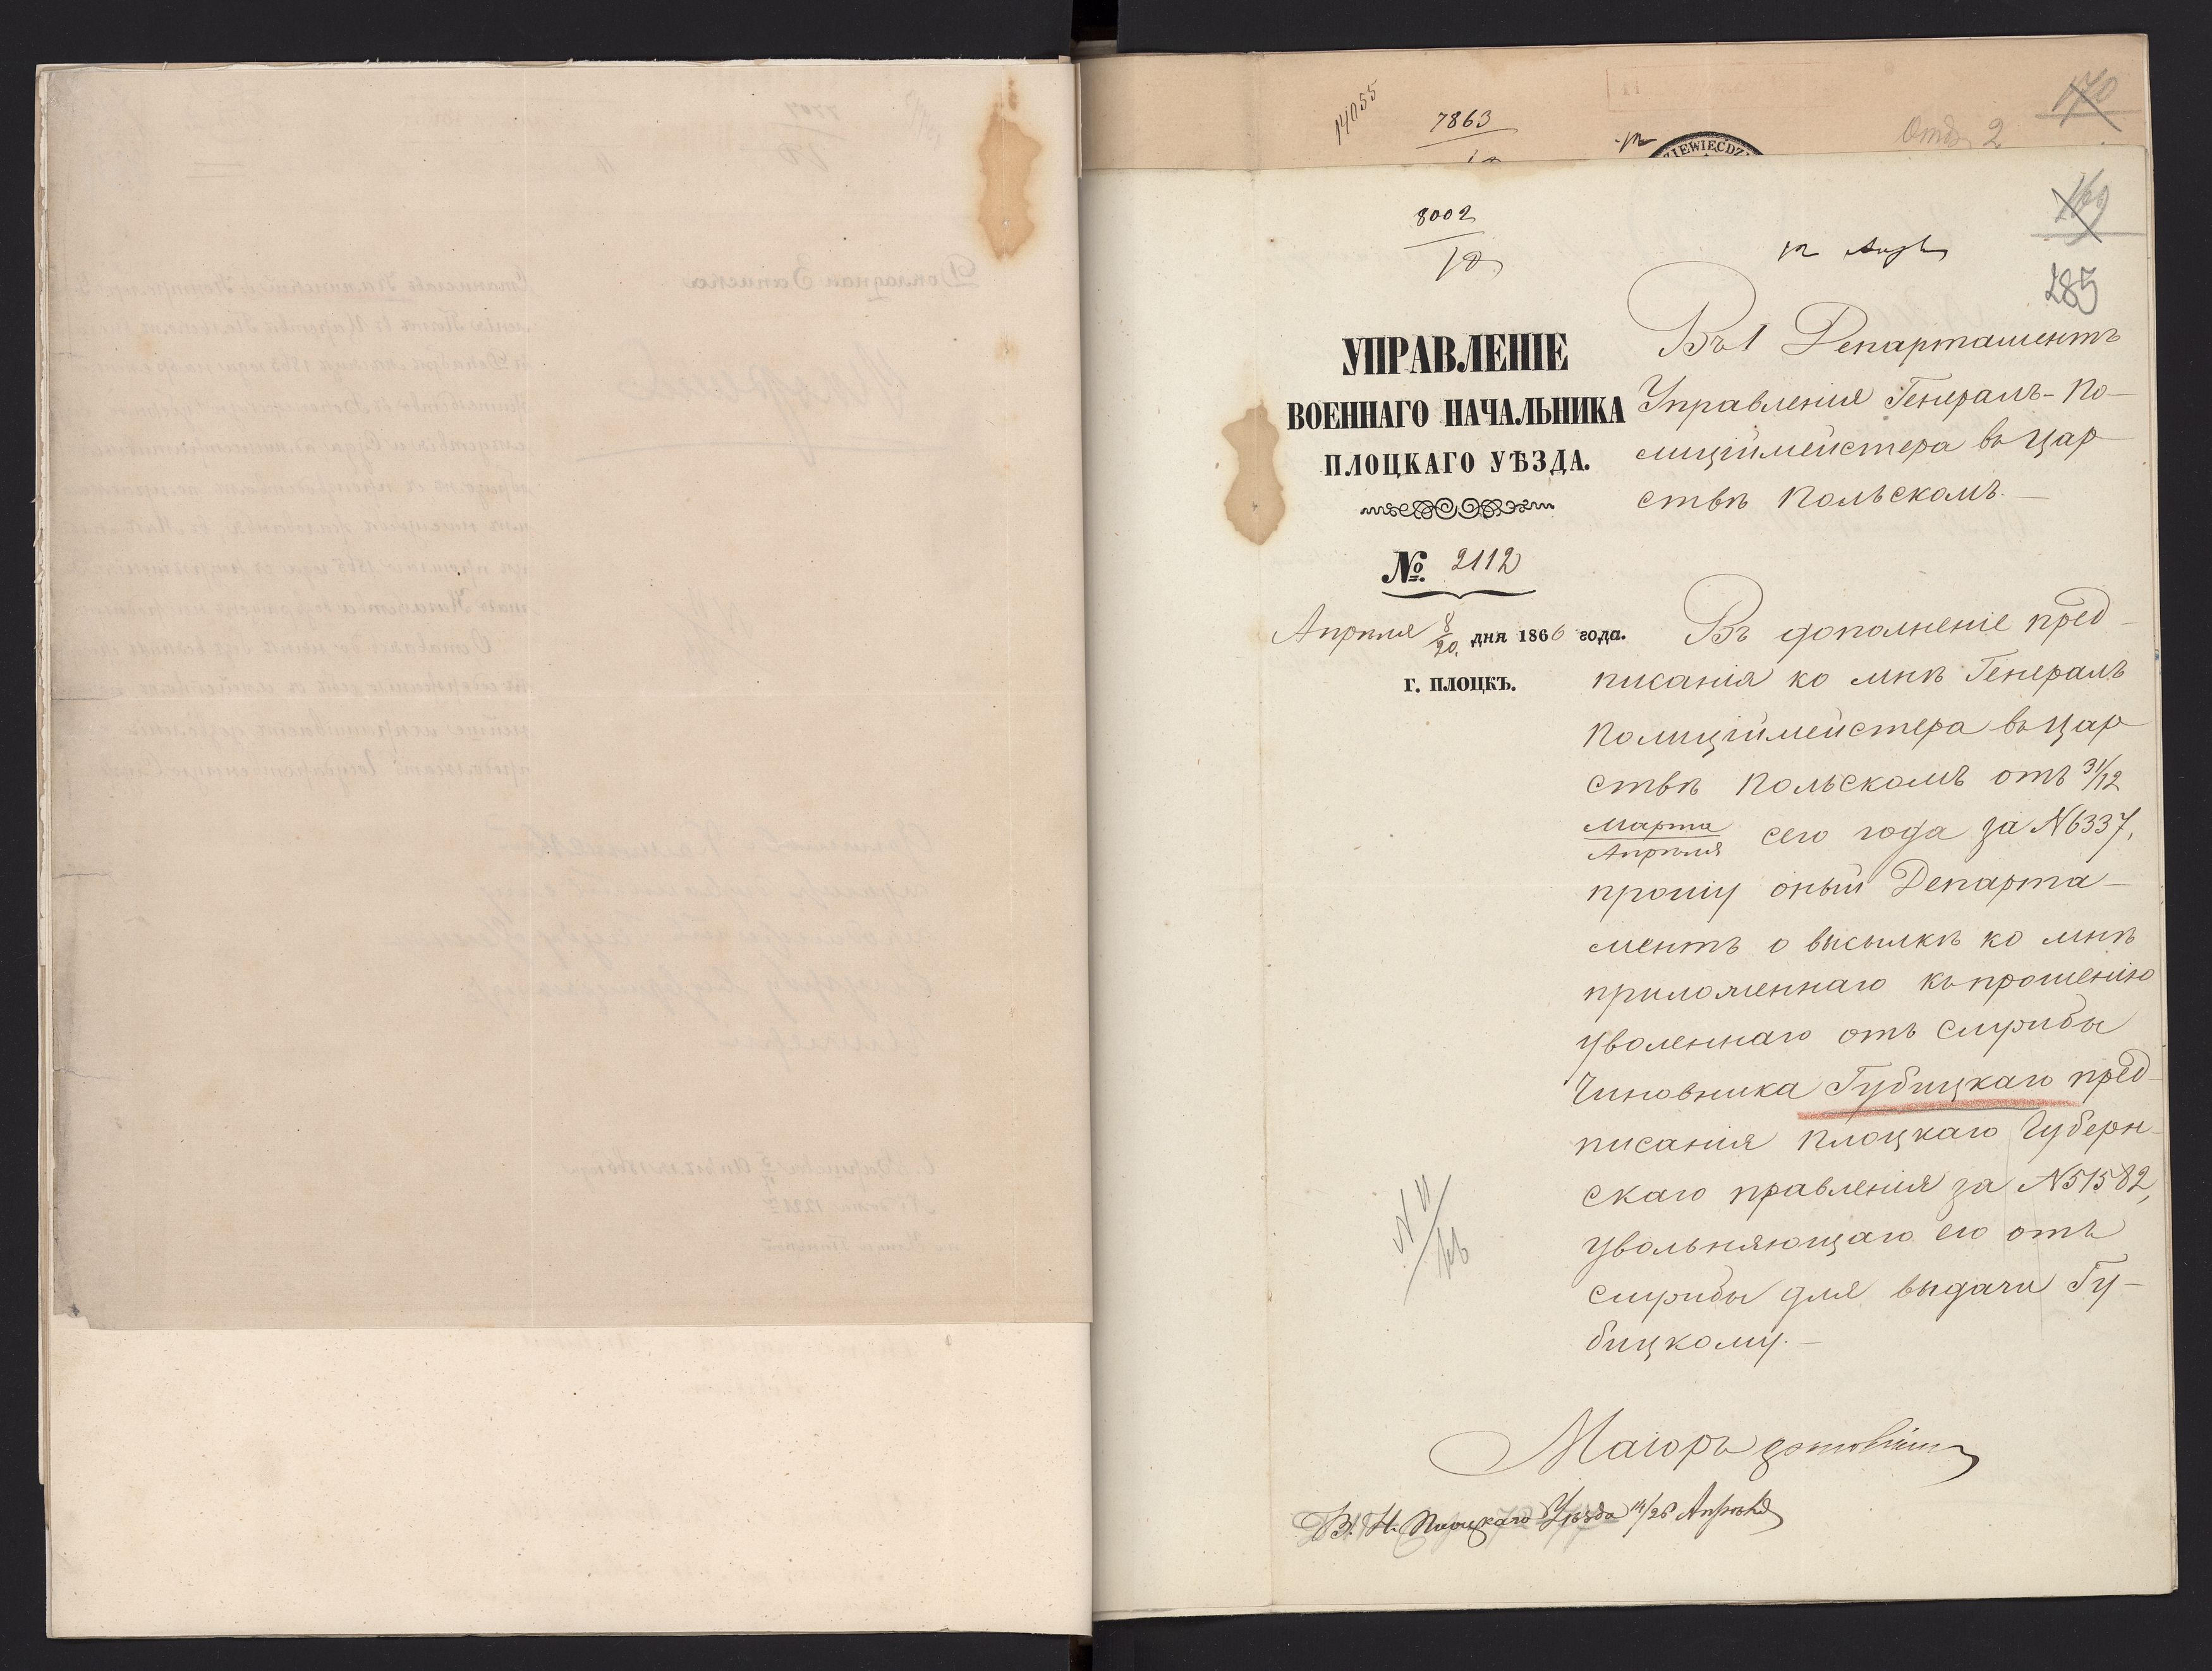 14055
7863
Отд 2
170
169
285
8002
12 Апр
УПРАВЛЕНІЕ
ВОЕННАГО НАЧАЛЬНИКА
ПЛОЦКАГО УѢЗДА.
№ 2112
Апрѣля 8/20 дня 1866 года.
г. ПЛОЦКЪ.
Въ 1 Департаментъ
Управленія Генералъ-По-
лиціймейстера въ Цар-
ствѣ Польскомъ.—
Въ дополненіе пред-
писанія ко мнѣ Генералъ
Полиціймейстера въ Цар-
ствѣ Польскомъ отъ 31/12
Марта/Апрѣля сего года за N 6337,
прошу оный Департа-
ментъ о высылкѣ ко мнѣ
приложеннаго къ прошенію
уволеннаго отъ службы
Чиновника Губицкаго пред-
писанія Плоцкаго Губерн-
скаго правленія за N 51582,
увольняющаго его отъ
службы для выдачи Гу-
бицкому.—
Маіоръ
В. Н. Плоцкаго Уѣзда 14/26 Апрѣля